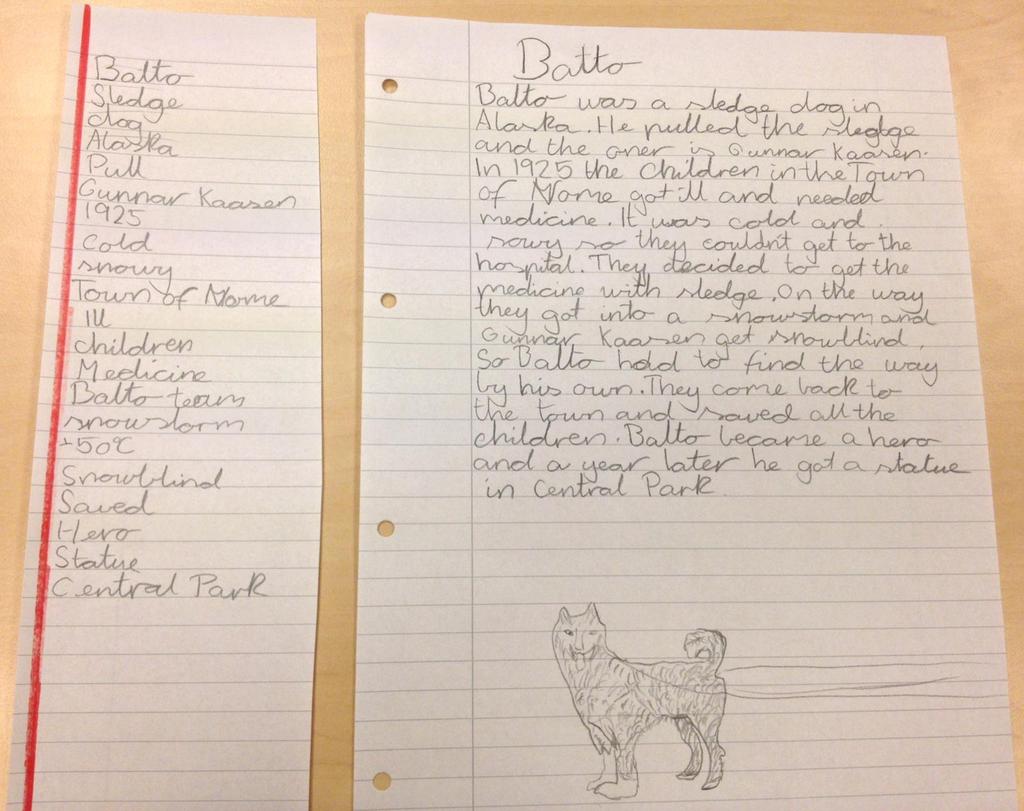 Balto
Sledge
dog
Alaska
Pull
Gunnar Kaasen
1925
cold
snowy
Town of Nome
Ill
children
Medicine
Balto team
snowstorm
-50°C
Snowblind
Saved
Hero
Statue
Central Park
Balto
Balto was a sledge dog in
Alaska. He pulled the sledge
and the oner is Gunnar Kaasen.
In 1925 the Children in the Town
of Nome got ill and needed
medicine. It was cold and
sowy so they couldn't get to the
hospital. They decided to get the
medicine with sledge. On the way
they got into a snowstorm and
Gunnar Kaasen get snowblind.
So Balto had to find the way
by his own. They come back to
the town and saved all the
children. Balto became a hero
and a year later he got a statue
in Central Park